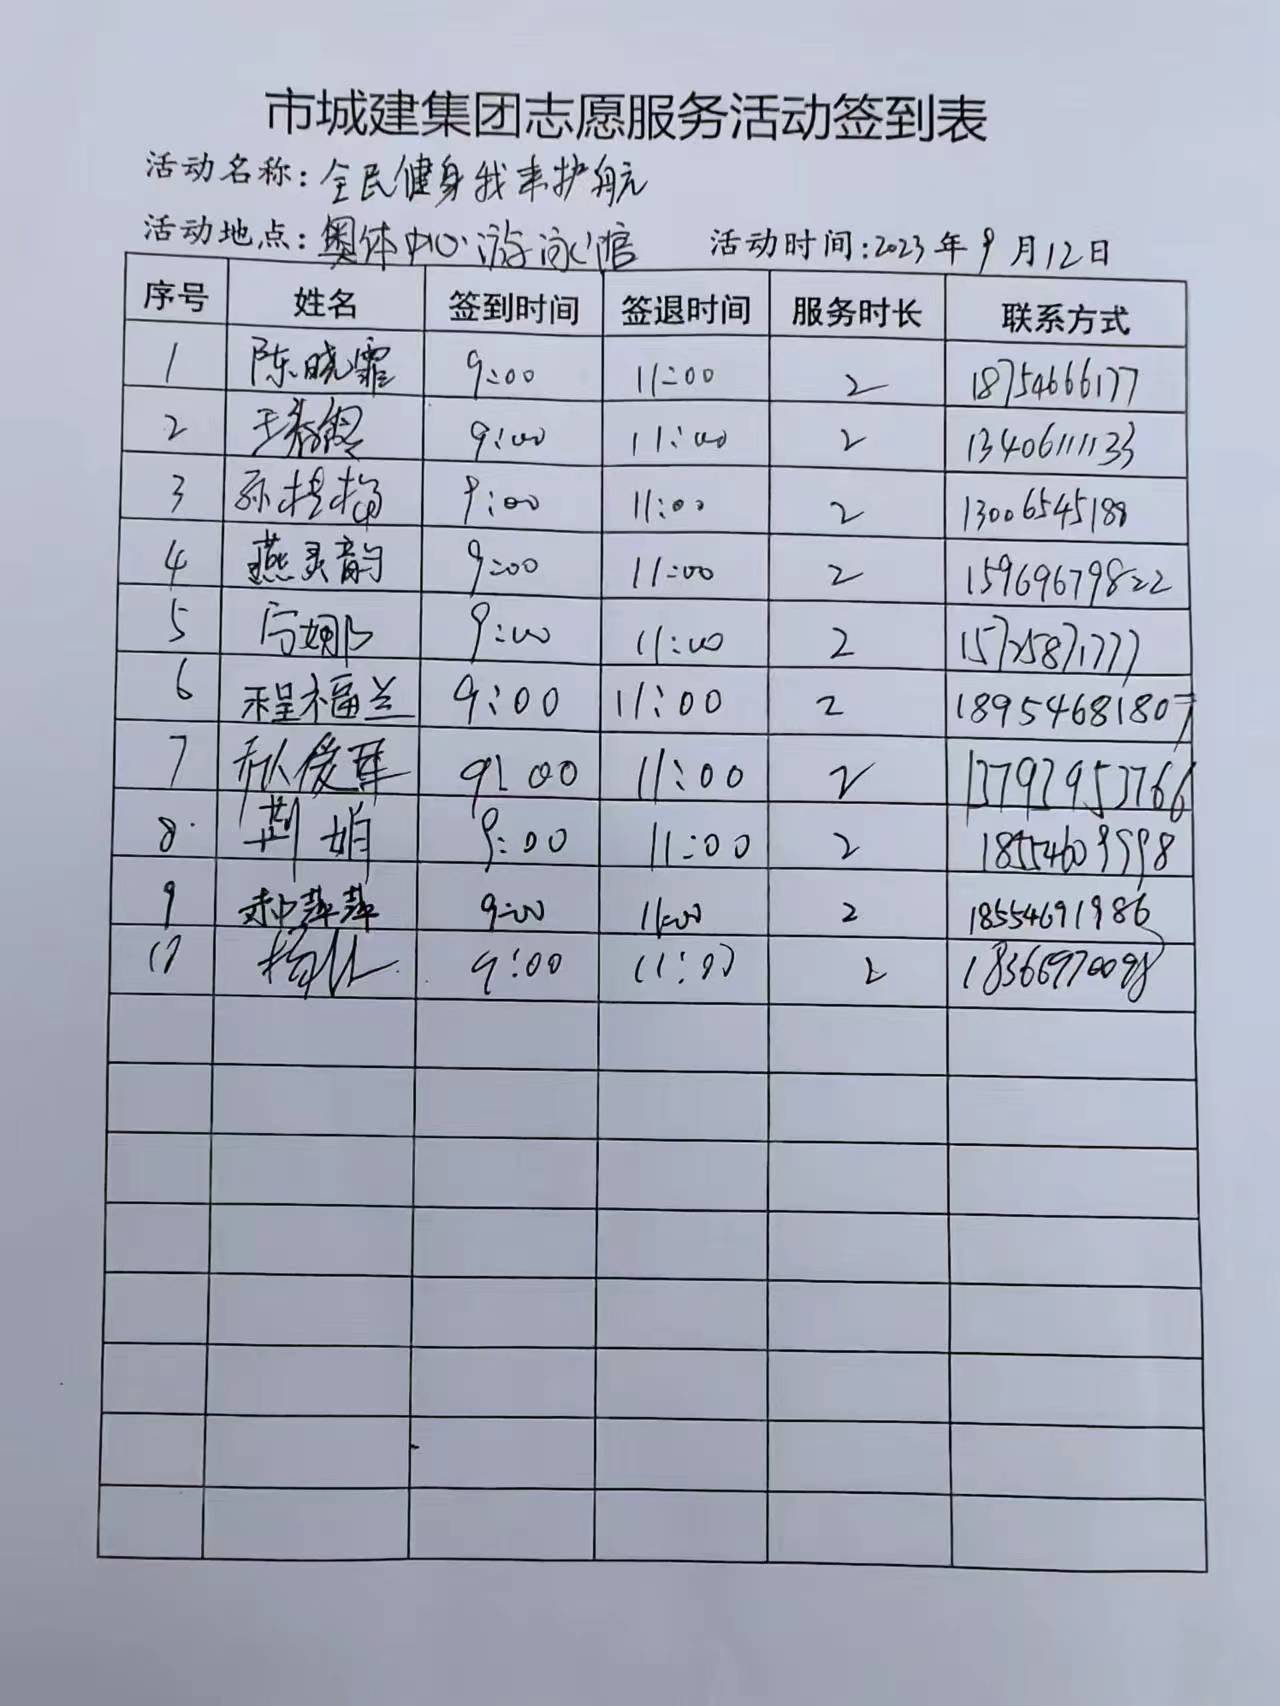 市城建集团志愿服务活动签到表
活动名称:全民健身我来护航
活动地点:奥体中心游泳馆 活动时间:2023年9月12日
序号 姓名 签到时间 签退时间 服务时长 联系方式
1 陈晓霏 9:00 11:00 2 18754666177
2 9:00 11:00 2 13406111133
3 孙桂梅 9:00 11:00 2 13006545188
4 燕灵韵 9:00 11:00 2 15969679822
5 9:00 11:00 2 15725871777
6 程福兰 9:00 11:00 2 18954681807
7 9:00 11:00 2 13792953766
8 荆娟 9:00 11:00 2 18554609998
9 郝萍萍 9:00 11:00 2 18554691986
10 9:00 11:00 2 18366970098